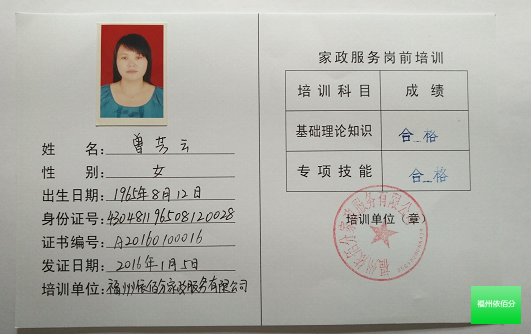 姓 名: 曾芳云
性 别: 女
出生日期: 1965年8月12日
身份证号: 430481196508120028
证书编号: A20160100016
发证日期: 2016年1月5日
培训单位: 福州依佰分家政服务有限公司
家政服务岗前培训
培训科目 成绩
基础理论知识 合格
专项技能 合格
培训单位（章）
福州依佰分家政服务有限公司
福州依佰分